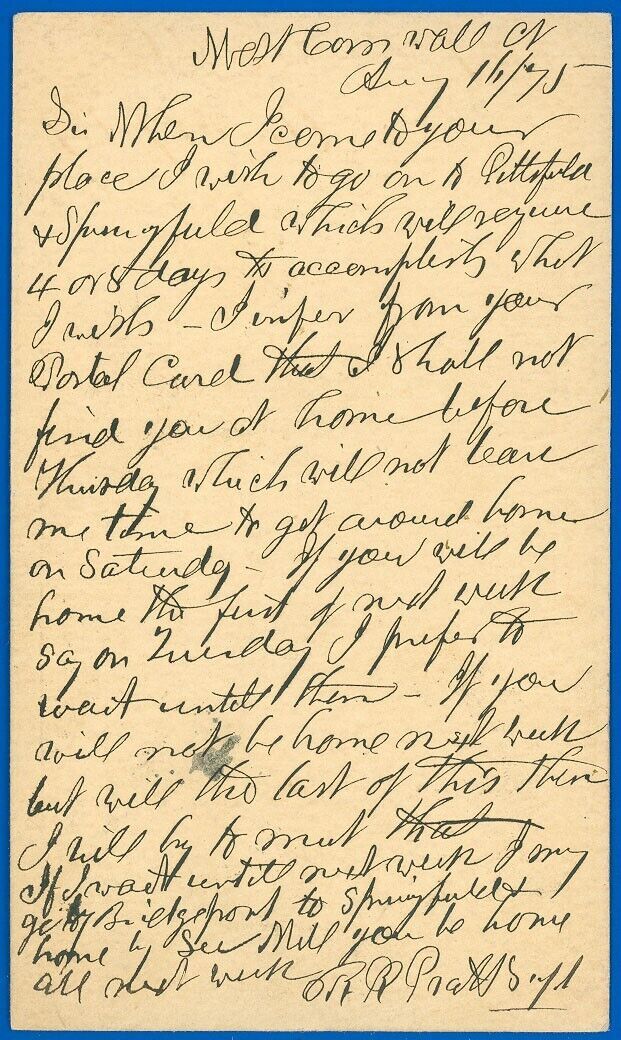 West Cornwall Ct
Aug 16/75
Sir When I come to your
place I wish to go on to Pittsfield
& Springfield which will require
4 or 5 days to accomplish what
I wish - I infer from your
Postal Card that I shall not
find you at home before
Thursday which will not leave
me time to get around home
on Saturday - If you will be
home the first of next week
say on Tuesday I prefer to
wait until then - If you
will not be home next week
but will the last of this then
I will try to meet that
If I wait until next week I may
go by Bridgeport to Springfield &
home by See Will you be home
all next week R R Pratt